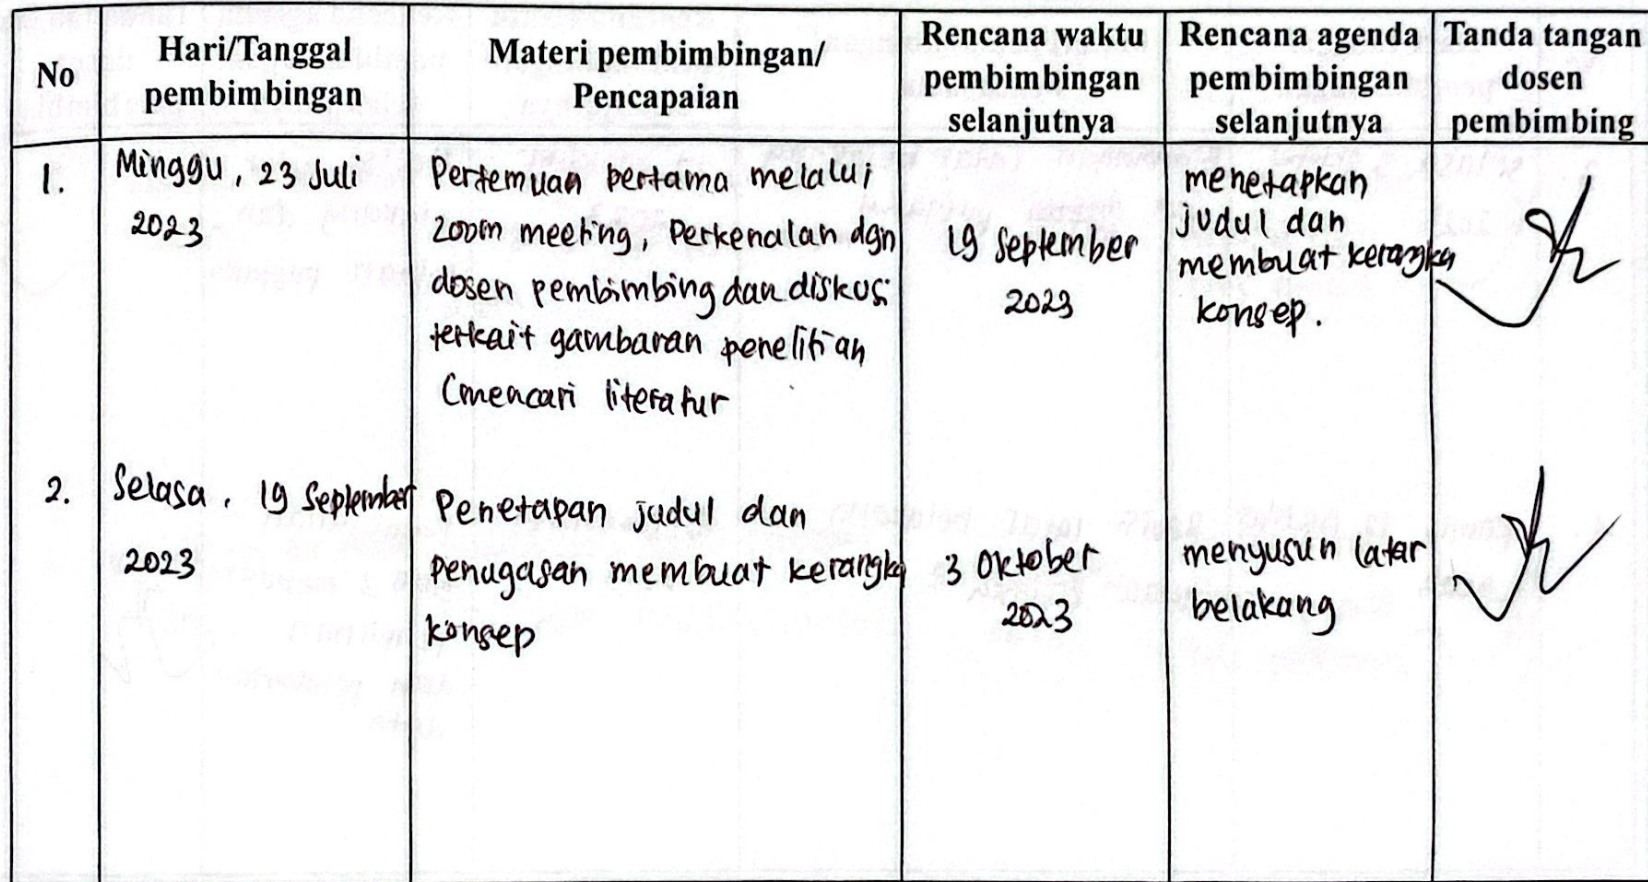 No
Hari/Tanggal
pembimbingan
Materi pembimbingan/
Pencapaian
Rencana waktu
pembimbingan
selanjutnya
Rencana agenda
pembimbingan
selanjutnya
Tanda tangan
dosen
pembimbing
1.
Minggu, 23 Juli
2023
Pertemuan pertama melalui
zoom meeting, Perkenalan dgn
dosen pembimbing dan diskusi
terkait gambaran penelitian
(mencari literatur
19 September
2023
menetapkan
judul dan
membuat kerangka
konsep.
2.
Selasa, 19 September
2023
Penetapan judul dan
penugasan membuat kerangka
konsep
3 Oktober
2023
menyusun latar
belakang